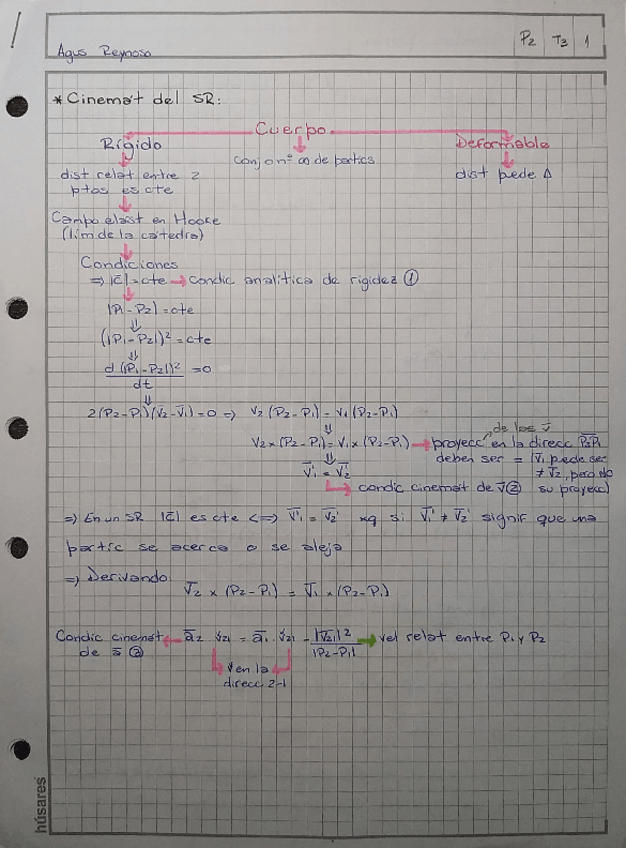 Agus Reynoso
P2 T3 1
* Cinemát del SR:
Cuerpo
Rígido
Conj o nº ∞ de partics
Deformable
dist relat entre 2
ptos es cte
dist pede Δ
Campo elást en Hooke
(lím de la cátedra)
Condiciones
⇒ |c̄| = cte → Condic analítica de rigidez ①
|P1 - P2| = cte
(|P1 - P2|)² = cte
d(|P1 - P2|)² / dt = 0
2(P2-P1)(V̄2-V̄1)=0 ⇒ V2 (P2-P1) = V1 (P2-P1)
V2 × (P2-P1) = V1 × (P2-P1) → proyecc de los v̄ en la direcc P2P1
deben ser = (V̄1 pede ser
V̄1' = V̄2'
≠ V̄2, pero no
su proyecc)
condic cinemát de v̄ ②
⇒ En un SR |c̄| es cte <=> V̄1' = V̄2' xq si V̄1' ≠ V̄2' signif que una
partíc se acerca o se aleja
⇒ Derivando:
V̄2 × (P2-P1) = V̄1 × (P2-P1)
Condic cinemát de ā ③ ← ā2 · v̌21 = ā1 · v̌21 - |V̄21|² / |P2-P1| → vel relat entre P1 y P2
v̌ en la
direcc 2-1
húsares